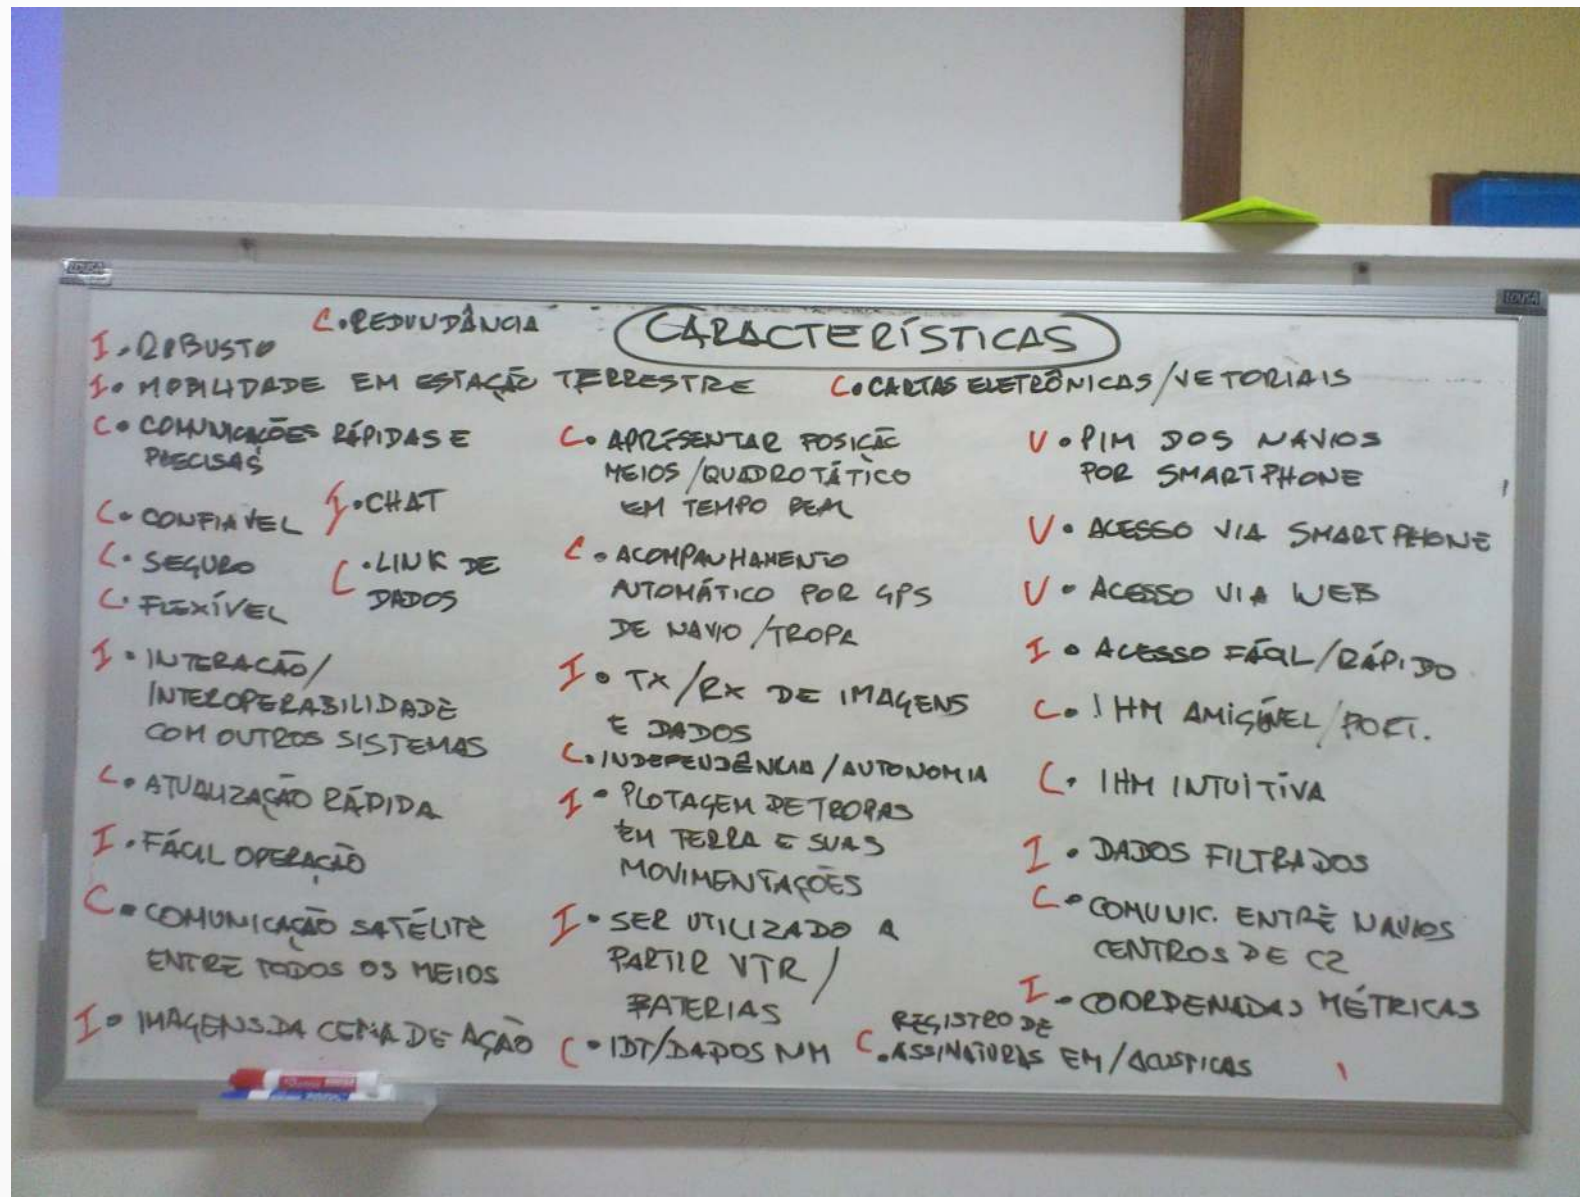 LOUSA
LOUSA
CARACTERÍSTICAS
C • REDUNDÂNCIA
I • ROBUSTO
I • MOBILIDADE EM ESTAÇÃO TERRESTRE
C • CARTAS ELETRÔNICAS/VETORIAIS
C • COMUNICAÇÕES RÁPIDAS E
PRECISAS
C • CONFIAVEL
I • CHAT
C • SEGURO
C • LINK DE
DADOS
C • FLEXÍVEL
I • INTERAÇÃO/
INTEROPERABILIDADE
COM OUTROS SISTEMAS
C • ATUALIZAÇÃO RÁPIDA
I • FÁCIL OPERAÇÃO
C • COMUNICAÇÃO SATÉLITE
ENTRE TODOS OS MEIOS
I • IMAGENS DA CENA DE AÇÃO
C • APRESENTAR POSIÇÃO
MEIOS/QUADRO TÁTICO
EM TEMPO REAL
C • ACOMPANHAMENTO
AUTOMÁTICO POR GPS
DE NAVIO/TROPA
I • TX/RX DE IMAGENS
E DADOS
C • INDEPENDÊNCIA/AUTONOMIA
I • PLOTAGEM DE TROPAS
EM TERRA E SUAS
MOVIMENTAÇÕES
I • SER UTILIZADO A
PARTIR VTR/
BATERIAS
C • IDT/DADOS NM
V • PIM DOS NAVIOS
POR SMARTPHONE
V • ACESSO VIA SMARTPHONE
V • ACESSO VIA WEB
I • ACESSO FÁCIL/RÁPIDO
C • IHM AMIGÁVEL/PORT.
C • IHM INTUITIVA
I • DADOS FILTRADOS
C • COMUNIC. ENTRE NAVIOS
CENTROS DE C2
I • COORDENADAS MÉTRICAS
REGISTRO DE
C • ASSINATURAS EM/ACUSTICAS